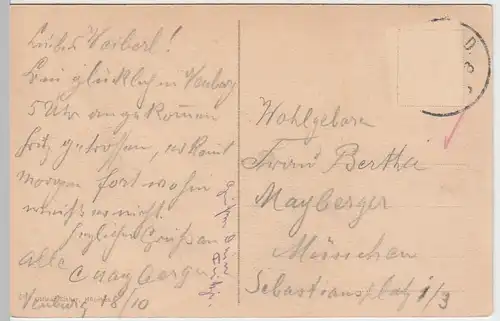 Liebes Weiberl!
Bin glücklich in Neuburg
5 Uhr angekommen
Fritz getroffen, er kommt
morgen fort wohin
weiß er nicht.
Herzlichen Gruß an
alle C Mayberger
Neuburg 18/10
D.
Wohlgeboren
Frau Bertha
Mayberger
München
Sebastiansplatz 1/3